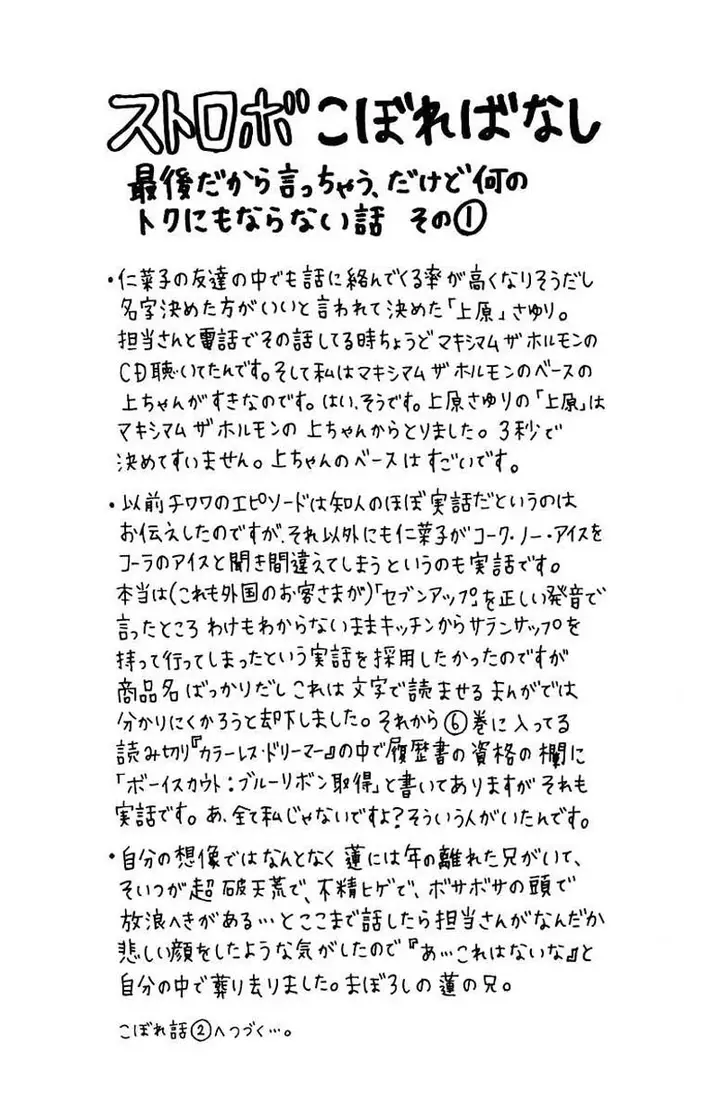 ストロボこぼればなし
最後だから言っちゃう、だけど何の
トクにもならない話 その①
・仁菜子の友達の中でも話に絡んでくる率が高くなりそうだし
名字決めた方がいいと言われて決めた「上原」さゆり。
担当さんと電話でその話してる時ちょうどマキシマム ザ ホルモンの
CD聴いてたんです。そして私はマキシマム ザ ホルモンのベースの
上ちゃんがすきなのです。はい、そうです。上原さゆりの「上原」は
マキシマム ザ ホルモンの 上ちゃんからとりました。3秒で
決めてすいません。上ちゃんのベースは すごいです。
・以前チワワのエピソードは知人のほぼ実話だというのは
お伝えしたのですが、それ以外にも仁菜子がコーク・ノー・アイスを
コーラのアイスと聞き間違えてしまうというのも実話です。
本当は(これも外国のお客さまが)「セブンアップ」を正しい発音で
言ったところ わけもわからないままキッチンからサランラップを
持って行ってしまったという実話を採用したかったのですが
商品名ばっかりだし これは 文字で読ませる まんがでは
分かりにくかろうと却下しました。それから⑥巻に入ってる
読み切り『カラーレス・ドリーマー』の中で履歴書の資格の欄に
「ボーイスカウト:ブルーリボン取得」と書いてありますが それも
実話です。あ、全て私じゃないですよ?そういう人がいたんです。
・自分の想像ではなんとなく 蓮には年の離れた兄がいて、
そいつが超 破天荒で、不精ヒゲで、ボサボサの頭で
放浪へきがある…とここまで話したら担当さんがなんだか
悲しい顔をしたような気がしたので『あ…これはないな』と
自分の中で葬り去りました。まぼろしの蓮の兄。
こぼれ話②へつづく…。